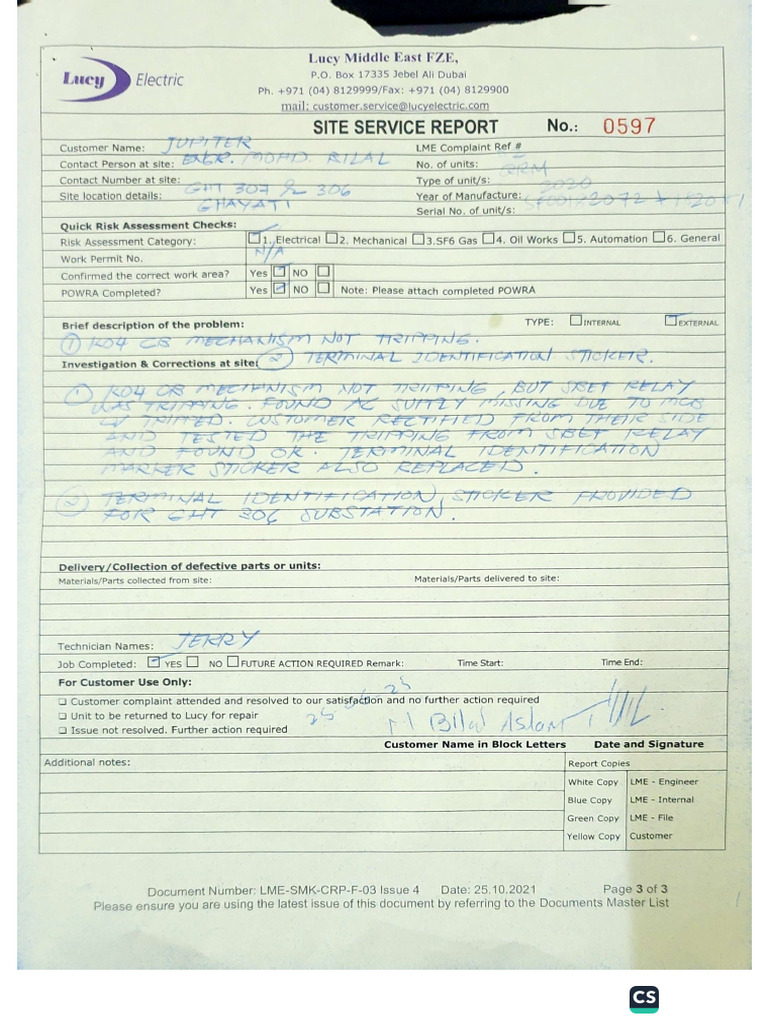 Lucy Electric
Lucy Middle East FZE,
P.O. Box 17335 Jebel Ali Dubai
Ph. +971 (04) 8129999/Fax: +971 (04) 8129900
mail: customer.service@lucyelectric.com
SITE SERVICE REPORT No.: 0597
Customer Name: JUPITER
LME Complaint Ref #
Contact Person at site: ENGR. MOHD. BILAL
No. of units:
Contact Number at site:
Type of unit/s: RRM
Site location details: GHT 307 & 306
GHAYATI
Year of Manufacture: 2020
Serial No. of unit/s:
Quick Risk Assessment Checks:
Risk Assessment Category: 1. Electrical 2. Mechanical 3.SF6 Gas 4. Oil Works 5. Automation 6. General
Work Permit No. N/A
Confirmed the correct work area? Yes NO
POWRA Completed? Yes NO Note: Please attach completed POWRA
Brief description of the problem: TYPE: INTERNAL EXTERNAL
① K04 CB MECHANISM NOT TRIPPING.
Investigation & Corrections at site: ② TERMINAL IDENTIFICATION STICKER.
① K04 CB MECHANISM NOT TRIPPING, BUT SBEF RELAY
WAS TRIPPING. FOUND AC SUPPLY MISSING DUE TO MCB
TRIPPED. CUSTOMER RECTIFIED FROM THEIR SIDE
AND TESTED THE TRIPPING FROM SBEF RELAY
AND FOUND OK. TERMINAL IDENTIFICATION
MARKER STICKER ALSO REPLACED.
② TERMINAL IDENTIFICATION STICKER PROVIDED
FOR GHT 306 SUBSTATION.
Delivery/Collection of defective parts or units:
Materials/Parts collected from site: Materials/Parts delivered to site:
Technician Names: JERRY
Job Completed: YES NO FUTURE ACTION REQUIRED Remark: Time Start: Time End:
For Customer Use Only:
Customer complaint attended and resolved to our satisfaction and no further action required
Unit to be returned to Lucy for repair
Issue not resolved. Further action required
M Bilal Aslam
Customer Name in Block Letters Date and Signature
Additional notes:
Report Copies
White Copy LME - Engineer
Blue Copy LME - Internal
Green Copy LME - File
Yellow Copy Customer
Document Number: LME-SMK-CRP-F-03 Issue 4 Date: 25.10.2021 Page 3 of 3
Please ensure you are using the latest issue of this document by referring to the Documents Master List
CS